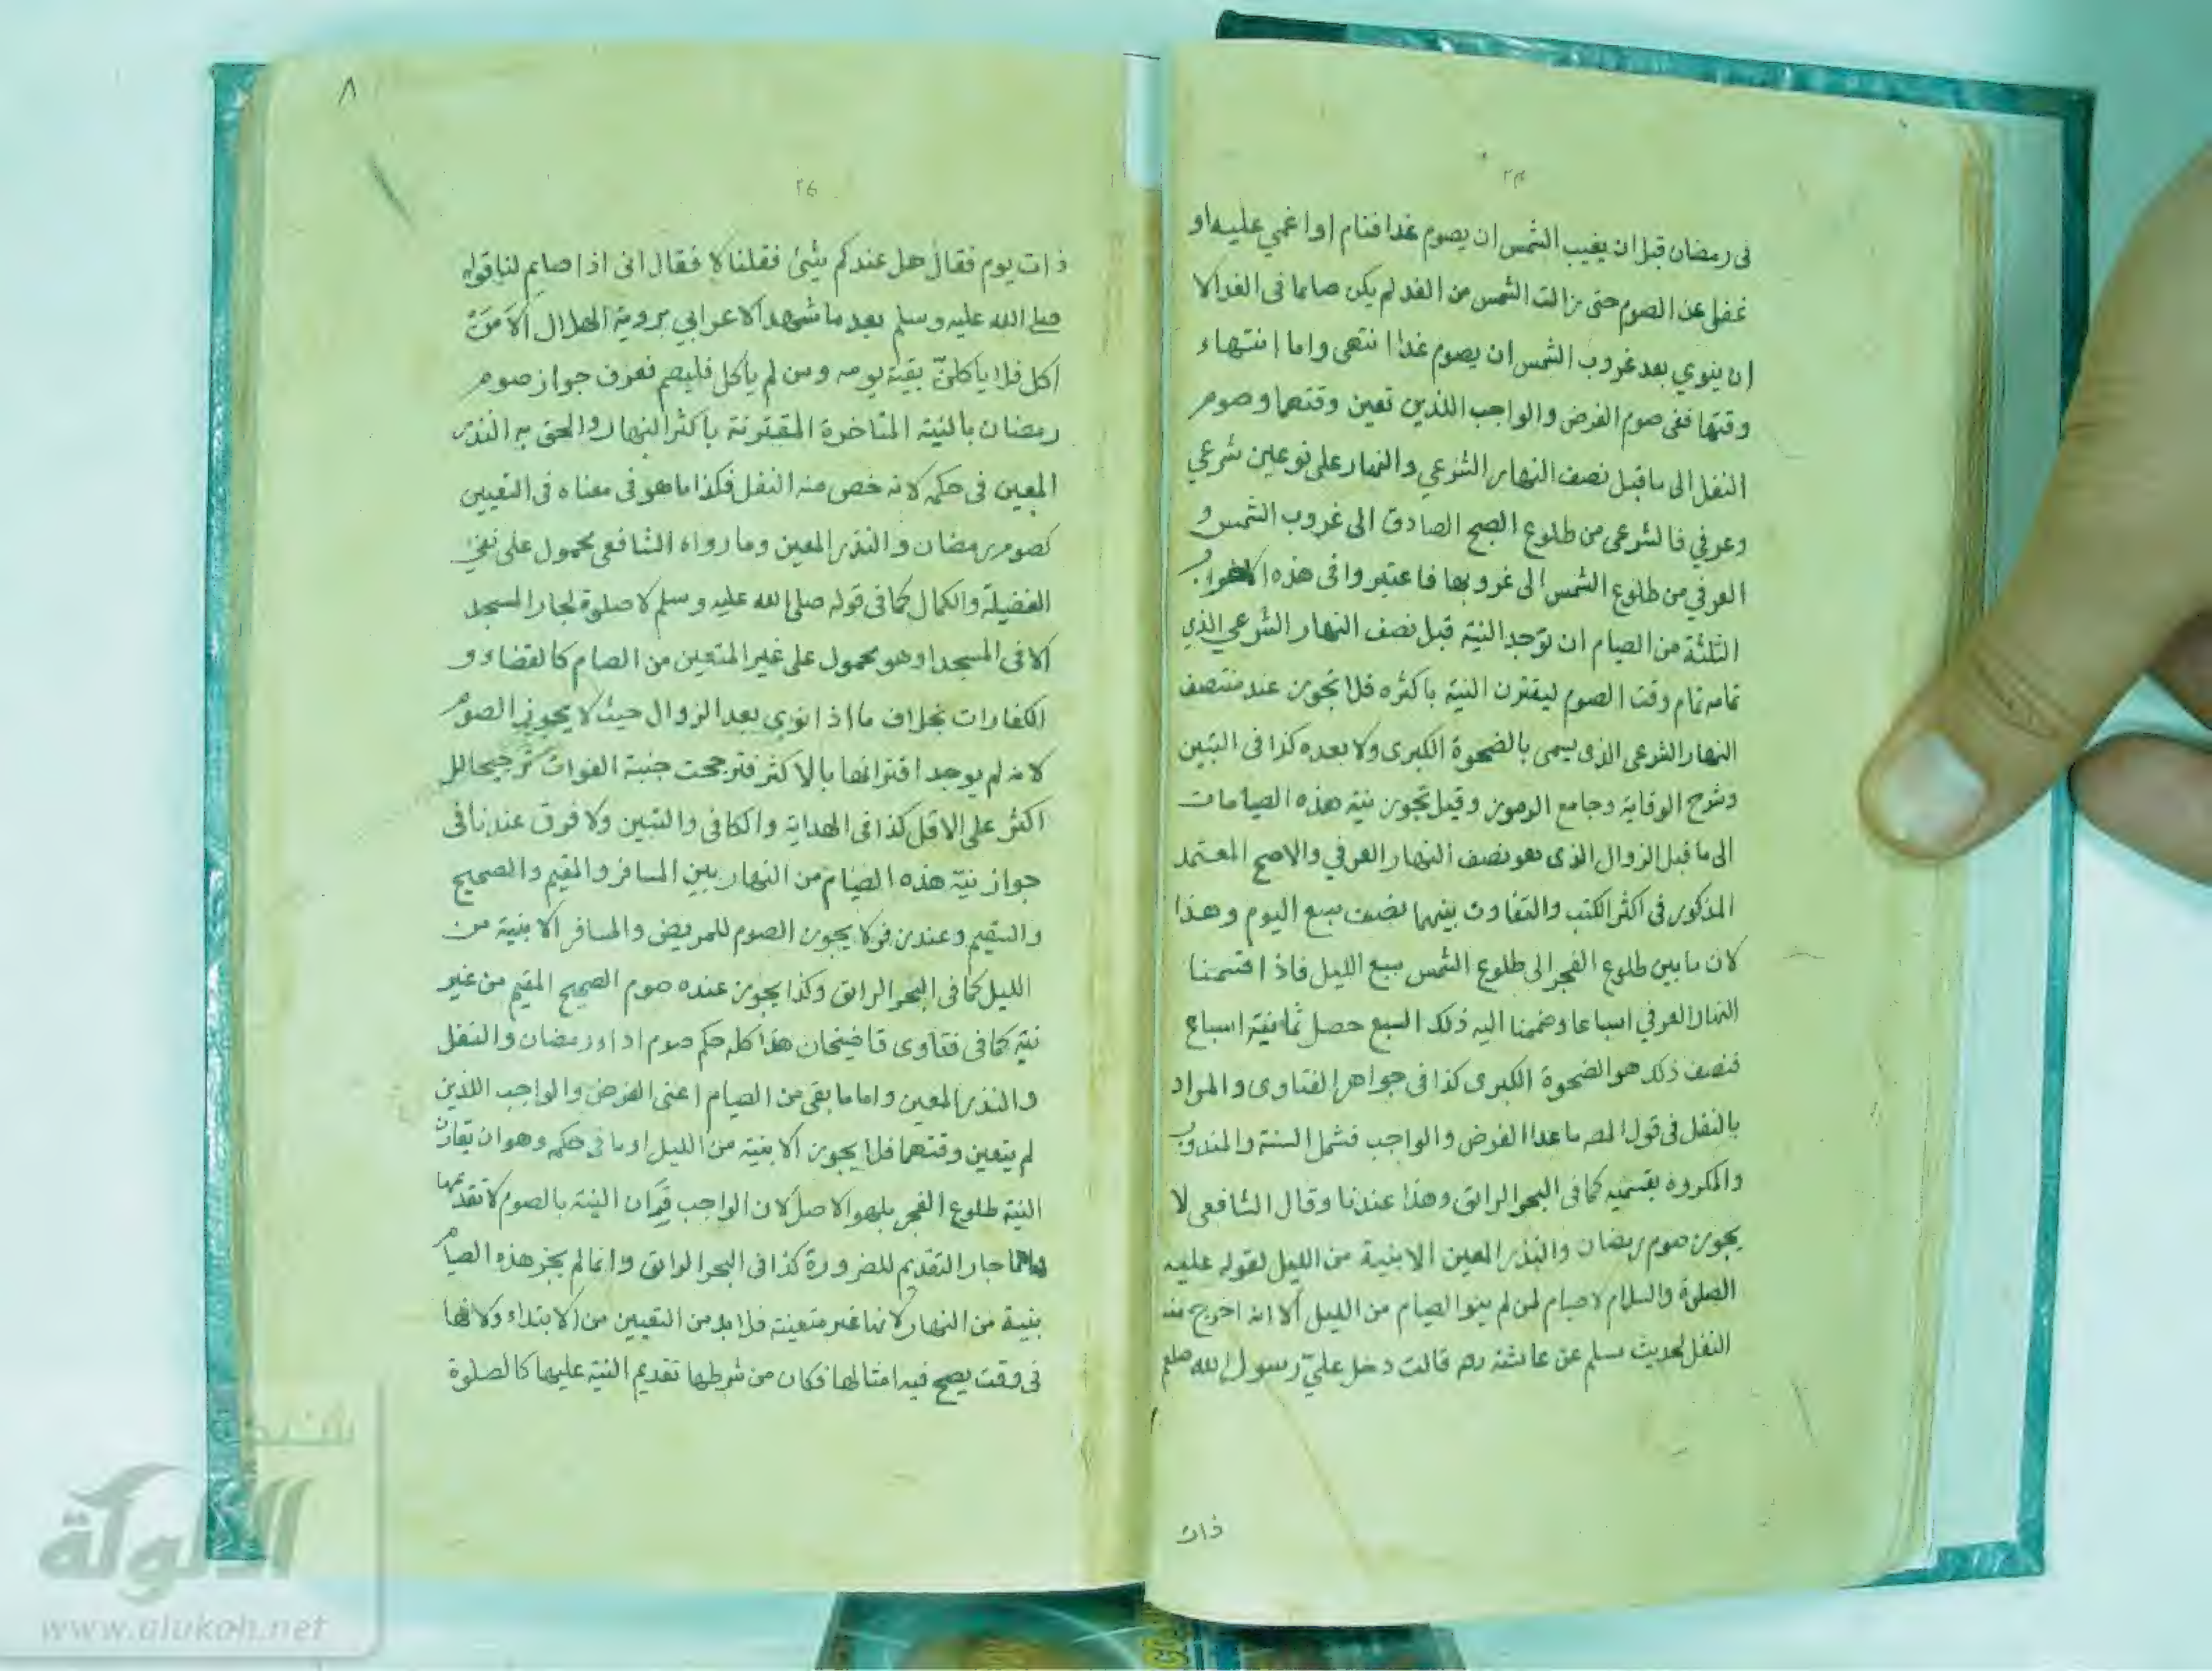 في رمضان قبل ان يغيب الشمس ان يصوم غدا فنام او اغمي عليه او
غفل عن الصوم حتى زالت الشمس من الغد لم يكن صائما في الغد الا
ان ينوي بعد غروب الشمس ان يصوم غدا انتهى واما انتهاء
وقتها ففي صوم الفرض والواجب اللذين تعين وقتهما وصوم
النفل الى ما قبل نصف النهار الشرعي والنهار على نوعين شرعي
وعرفي فالشرعي من طلوع الصبح الصادق الى غروب الشمس و
العرفي من طلوع الشمس الى غروبها فاعتبروا في هذه
الثلثة من الصيام ان توجد النية قبل نصف النهار الشرعي الذي
تمامه تمام وقت الصوم ليقترن النية باكثره فلا تجوز عند منتصف
النهار الشرعي الذي يسمى بالضحوة الكبرى ولا بعده كذا في التبين
وشرح الوقاية وجامع الرموز وقيل تجوز نية هذه الصيامات
الى ما قبل الزوال الذي هو نصف النهار العرفي والاصح المعتمد
المذكور في اكثر الكتب والتفاوت بينهما نصف سبع اليوم وهذا
لان ما بين طلوع الفجر الى طلوع الشمس سبع الليل فاذا اقتسمنا
النهار العرفي اسباعا وضممنا اليه ذلك السبع حصل ثمانية اسباع
فنصف ذلك هو الضحوة الكبرى كذا في جواهر الفتاوى والمراد
بالنفل في قول المص ما عدا الفرض والواجب فشمل السنة والمندوب
والمكروه بقسميه كما في البحر الرائق وهذا عندنا وقال الشافعي لا
يجوز صوم رمضان والنذر المعين الا بنية من الليل لقوله عليه
الصلوة والسلام لا صيام لمن لم ينو الصيام من الليل الا انه اخرج منه
النفل لحديث مسلم عن عائشة رضـ قالت دخل عليّ رسول الله صلعم
ذات
٨
٢٤
ذات يوم فقال هل عندكم شئ فقلنا لا فقال اني اذا صايم لنا قوله
صلى الله عليه وسلم بعد ما شهد الاعرابي بروية الهلال الا من
اكل فلا ياكلنّ بقية يومه ومن لم ياكل فليصم فعرف جواز صوم
رمضان بالنية المتاخرة المقترنة باكثر النهار والحق به النذر
المعين في حكمه لانه خص منه النفل فكذا ما هو في معناه في التعيين
كصوم رمضان والنذر المعين وما رواه الشافعي محمول على نفي
الفضيلة والكمال كما في قوله صلى الله عليه وسلم لا صلوة لجار المسجد
الا في المسجد او هو محمول على غير المتعين من الصيام كالقضاء و
الكفارات بخلاف ما اذا نوي بعد الزوال حيث لا يجوز الصوم
لانه لم يوجد اقترانها بالاكثر فترجحت جنبة الفوات ترجيحا لل
اكثر على الاقل كذا في الهداية والكافي والتبين ولا فرق عندنا في
جواز نية هذه الصيام من النهار بين المسافر والمقيم والصحيح
والسقيم وعند زفر لا يجوز الصوم للمريض والمسافر الا بنية من
الليل كما في البحر الرائق وكذا يجوز عنده صوم الصحيح المقيم من غير
نية كما في فتاوى قاضيخان هذا كله حكم صوم اداء رمضان والنفل
والنذر المعين واما ما بقي من الصيام اعني الفرض والواجب اللذين
لم يتعين وقتهما فلا يجوز الا بنية من الليل او ما في حكمه وهو ان يقارن
النية طلوع الفجر بل هو الاصل لان الواجب قران النية بالصوم لا تقديمها
وانما جاز التقديم للضرورة كذا في البحر الرائق وانما لم يجز هذه الصيام
بنية من النهار لانها غير متعينة فلا بد من التعيين من الابتداء ولانها
في وقت يصح فيه امثالها فكان من شرطها تقديم النية عليها كالصلوة
شبكة
الألوكة
www.alukah.net